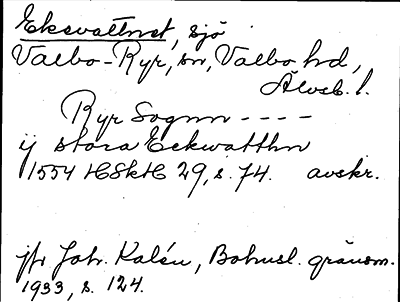 Eksvattnet, sjö
Valbo-Ryr, sn, Valbo hd,
Älvsb. l.
Ryr Sognn ----
ij stora Eekwatthn
1554 HSkH 29, s. 74. avskr.
jfr Joh. Kalén, Bohusl. gränsm.
1933, s. 124.